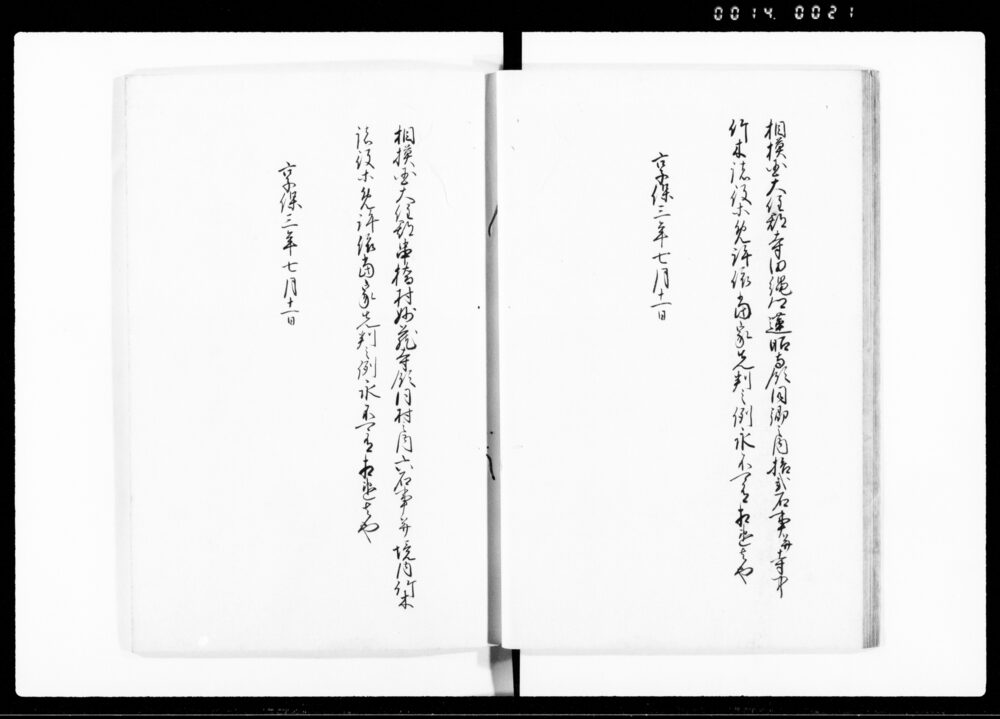 0014. 0021
相模国大住郡寺田縄郷蓮昭寺領同郷之内拾弐石事并寺中
竹木諸役等免許依当家先判之例永不可有相違者也
享保三年七月十一日
相模国大住郡串橋村妙蔵寺領同村之内六石事并境内竹木
諸役等免許依当家先判之例永不可有相違者也
享保三年七月十一日